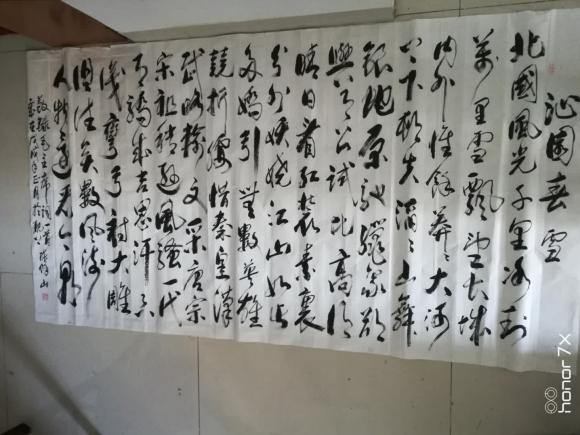 沁園春雪
北國風光千里冰封
萬里雪飄望長城
内外惟餘莽〻大河
上下頓失滔〻山舞
銀蛇原馳蠟象欲
與天公試比高須
晴日看紅裝素裹
分外妖嬈江山如此
多嬌引無數英雄
競折腰惜秦皇漢
武略輸文采唐宗
宋祖稍遜風騷一代
天驕成吉思汗只
識彎弓射大雕
俱往矣數風流
人物還看今朝
敬錄毛主席詞一首 山
歲在戊戌年正月於
honor 7X